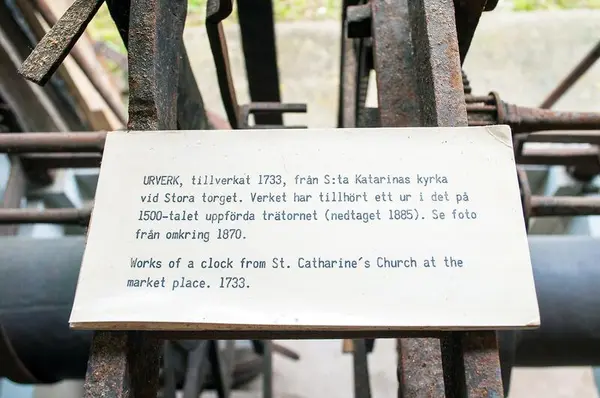 URVERK, tillverkat 1733, från S:ta Katarinas kyrka
vid Stora torget. Verket har tillhört ett ur i det på
1500-talet uppförda trätornet (nedtaget 1885). Se foto
från omkring 1870.
Works of a clock from St. Catharine´s Church at the
market place. 1733.